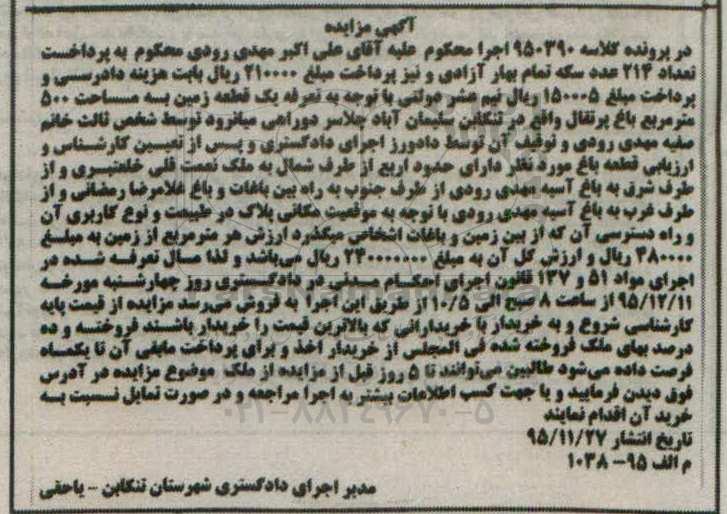 آگهی مزایده
در پرونده کلاسه ۹۵۰۳۹۰ اجرا محکوم علیه آقای علی اکبر مهدی رودی محکوم به پرداخت
تعداد ۲۱۴ عدد سکه تمام بهار آزادی و نیز پرداخت مبلغ ۲۱۰۰۰۰ ریال بابت هزینه دادرسی و
پرداخت مبلغ ۱۵۰۰۰۵ ریال نیم عشر دولتی با توجه به تعرفه یک قطعه زمین به مساحت ۵۰۰
مترمربع باغ پرتقال واقع در تنکابن سلیمان آباد جلاسر دوراهی میانرود توسط شخص ثالث خانم
صفیه مهدی رودی و توقیف آن توسط دادورز اجرای دادگستری و پس از تعیین کارشناس و
ارزیابی قطعه باغ مورد نظر دارای حدود اربع از طرف شمال به ملک نعمت قلی خلعتبری و از
طرف شرق به باغ آسیه مهدی رودی از طرف جنوب به راه بین باغات و باغ غلامرضا رمضانی و از
طرف غرب به باغ آسیه مهدی رودی با توجه به موقعیت مکانی پلاک در طبیعت و نوع کاربری آن
و راه دسترسی آن که از بین زمین و باغات اشخاص میگذرد ارزش هر مترمربع از زمین به مبلغ
۴۸۰۰۰۰ ریال و ارزش کل آن به مبلغ ۲۴۰۰۰۰۰۰۰ ریال می‌باشد و لذا مال تعرفه شده در
اجرای مواد ۵۱ و ۱۳۷ قانون اجرای احکام مدنی در دادگستری روز چهارشنبه مورخه
۹۵/۱۲/۱۱ از ساعت ۸ صبح الی ۱۰/۵ از طریق این اجرا به فروش می‌رسد مزایده از قیمت پایه
کارشناسی شروع و به خریدار یا خریدارانی که بالاترین قیمت را خریدار باشند فروخته و ده
درصد بهای ملک فروخته شده فی المجلس از خریدار اخذ و برای پرداخت مابقی آن تا یکماه
فرصت داده می‌شود طالبین می‌توانند تا ۵ روز قبل از مزایده از ملک موضوع مزایده در آدرس
فوق دیدن فرمایید و یا جهت کسب اطلاعات بیشتر به اجرا مراجعه و در صورت تمایل نسبت به
خرید آن اقدام نمایند
۰۲۱-۸۸۳۴۹۶۷۰-۵
تاریخ انتشار ۹۵/۱۱/۲۷
م الف ۹۵- ۱۰۳۸
مدیر اجرای دادگستری شهرستان تنکابن - یاحقی